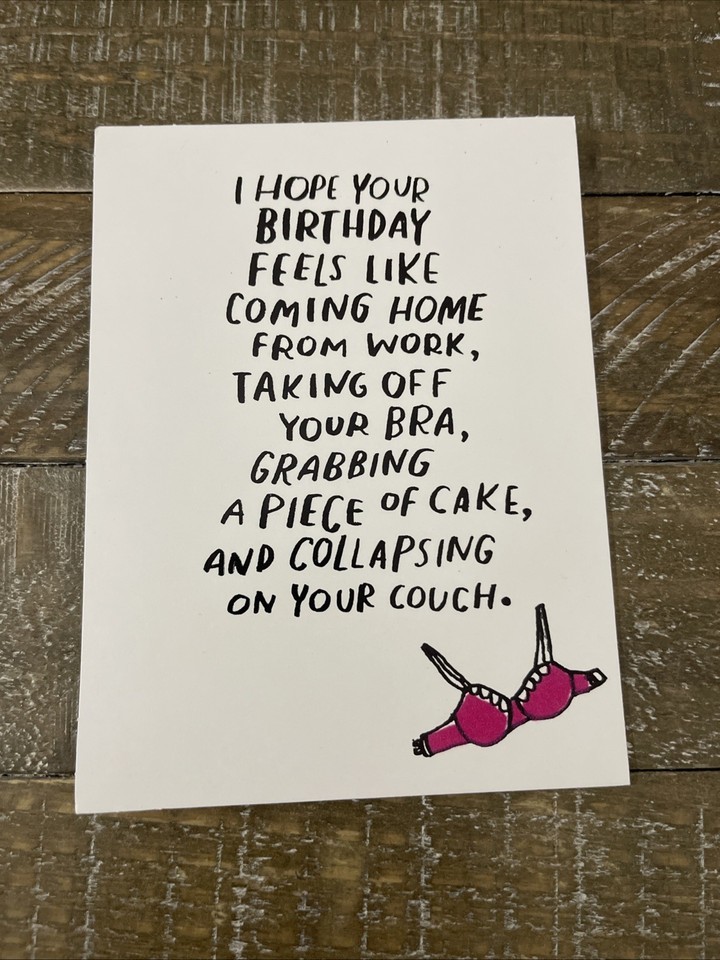 I HOPE YOUR
BIRTHDAY
FEELS LIKE
COMING HOME
FROM WORK,
TAKING OFF
YOUR BRA,
GRABBING
A PIECE OF CAKE,
AND COLLAPSING
ON YOUR COUCH.